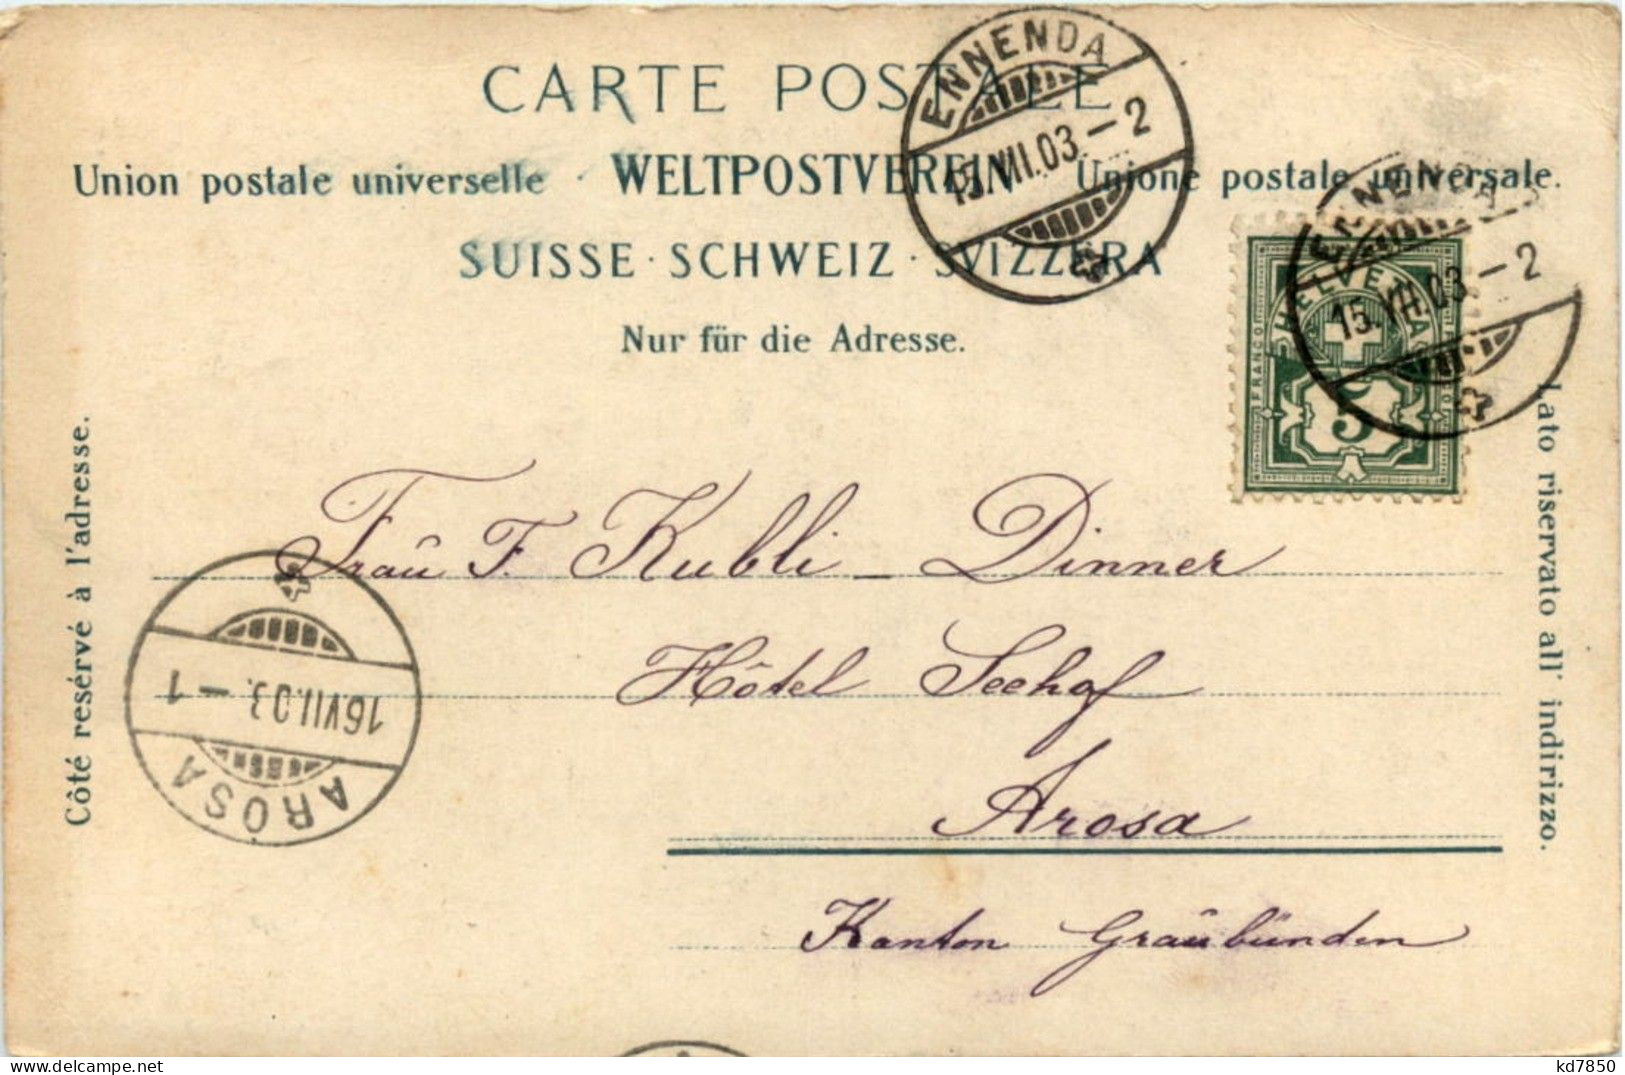 CARTE POSTALE
Union postale universelle · WELTPOSTVEREIN · Unione postale universale.
SUISSE · SCHWEIZ · SVIZZERA
Nur für die Adresse.
ENNENDA
15.VII.03.–2
ENNENDA
15.VII.03.–2
HELVETIA
FRANCO
FRANCO
5
Côté resérvé à l'adresse.
Lato riservato all' indirizzo.
Fraû F. Kubli – Dinner
Hôtel Seehof
Arosa
Kanton Graûbünden
AROSA
16 VII.03.–1
kd7850